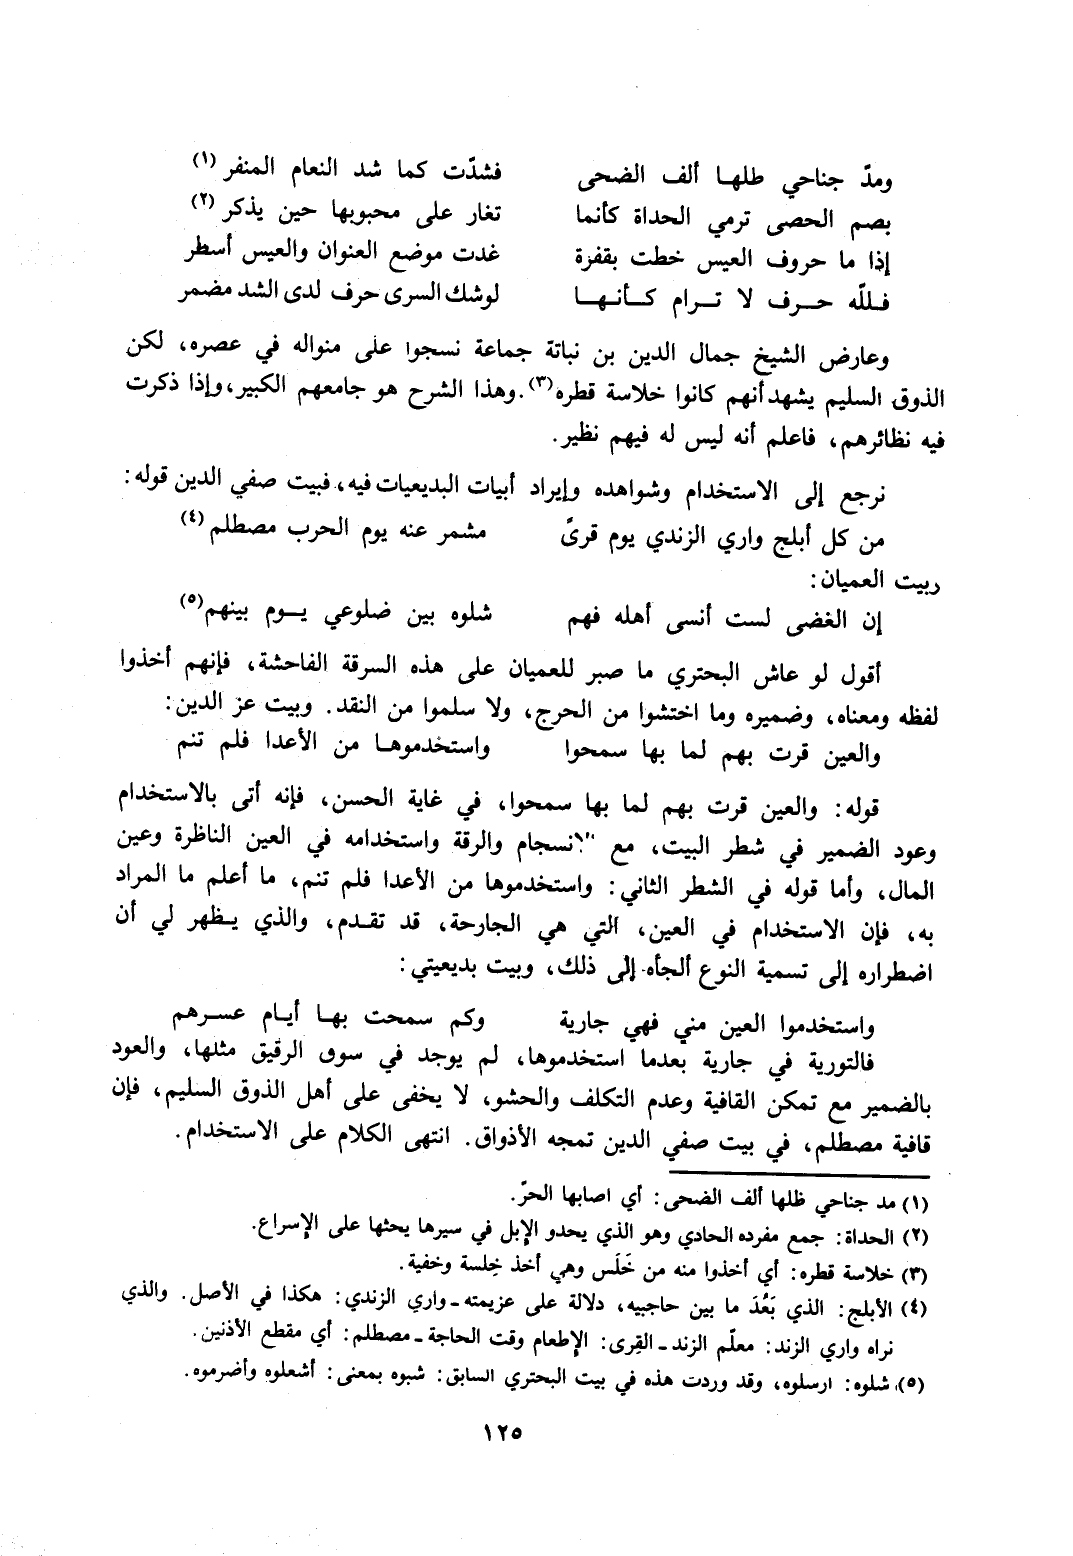 ومدّ جناحي طلهـا ألف الضحى فشدّت كما شد النعام المنفر (١)
بصم الحصى ترمي الحداة كأنما تغار على محبوبها حين يذكر (٢)
إذا ما حروف العيس خطت بقفرة غدت موضع العنوان والعيس أسطر
فـللّه حـرف لا تـرام كـأنهـا لوشك السرى حرف لدى الشد مضمر
وعارض الشيخ جمال الدين بن نباتة جماعة نسجوا على منواله في عصره، لكن
الذوق السليم يشهد أنهم كانوا خلاسة قطره(٣). وهذا الشرح هو جامعهم الكبير، وإذا ذكرت
فيه نظائرهم، فاعلم أنه ليس له فيهم نظير.
نرجع إلى الاستخدام وشواهده وإيراد أبيات البديعيات فيه، فبيت صفي الدين قوله:
من كل أبلج واري الزندي يوم قرىً مشمر عنه يوم الحرب مصطلم (٤)
ربيت العميان:
إن الغضى لست أنسى أهله فهم شلوه بين ضلوعي يـوم بينهم(٥)
أقول لو عاش البحتري ما صبر للعميان على هذه السرقة الفاحشة، فإنهم أخذوا
لفظه ومعناه، وضميره وما اختشوا من الحرج، ولا سلموا من النقد. وبيت عز الدين:
والعين قرت بهم لما بها سمحوا واستخدموهـا من الأعدا فلم تنم
قوله: والعين قرت بهم لما بها سمحوا، في غاية الحسن، فإنه أتى بالاستخدام
وعود الضمير في شطر البيت، مع الانسجام والرقة واستخدامه في العين الناظرة وعين
المال، وأما قوله في الشطر الثاني: واستخدموها من الأعدا فلم تنم، ما أعلم ما المراد
به، فإن الاستخدام في العين، التي هي الجارحة، قد تقـدم، والذي يـظهر لي أن
اضطراره إلى تسمية النوع ألجأه إلى ذلك، وبيت بديعيتي:
واستخدموا العين مني فهي جارية وكم سمحت بهـا أيـام عسـرهم
فالتورية في جارية بعدما استخدموها، لم يوجد في سوق الرقيق مثلها، والعود
بالضمير مع تمكن القافية وعدم التكلف والحشو، لا يخفى على أهل الذوق السليم، فإن
قافية مصطلم، في بيت صفي الدين تمجه الأذواق. انتهى الكلام على الاستخدام.
(١) مد جناحي ظلها ألف الضحى: أي اصابها الحرّ.
(٢) الحداة: جمع مفرده الحادي وهو الذي يحدو الإبل في سيرها يحثها على الإسراع.
(٣) خلاسة قطره: أي أخذوا منه من خَلَس وهي أخذ خِلسة وخفية.
(٤) الأبلج: الذي بَعُدَ ما بين حاجبيه، دلالة على عزيمته ـ واري الزندي: هكذا في الأصل. والذي
نراه واري الزند: معلّم الزند ـ القِرى: الإطعام وقت الحاجة ـ مصطلم: أي مقطع الأذنين.
(٥) شلوه: ارسلوه، وقد وردت هذه في بيت البحتري السابق: شبوه بمعنى: أشعلوه وأضرموه.
١٢٥